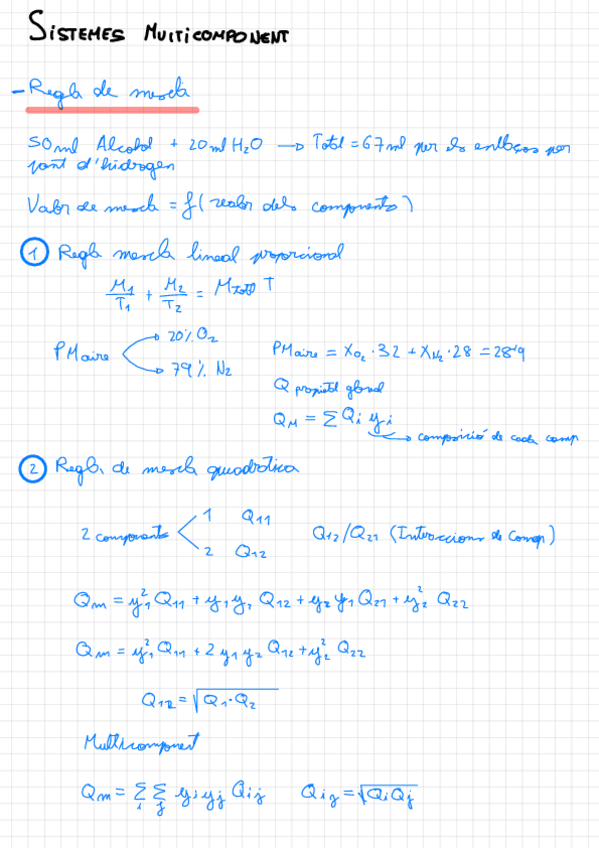 SISTEMES MULTICOMPONENT
- Regla de mescla
50 ml Alcohol + 20 ml H2O → Total = 67 ml per els enllaços per
pont d'hidrogen
Valor de mescla = f( dels components )
1 Regla mescla lineal proporcional
M1/T1 + M2/T2 = MTotal T
PMaire
20% O2
79% N2
PMaire = XO2 · 32 + XN2 · 28 = 28'9
Q propietat global
QM = Σ Qi yi
composició de cada comp
2 Regla de mescla quadratica
2 components
1 Q11
2 Q12
Q12/Q21 (Interaccions de Comp)
Qm = y1² Q11 + y1 y2 Q12 + y2 y1 Q21 + y2² Q22
Qm = y1² Q11 + 2 y1 y2 Q12 + y2² Q22
Q12 = √Q1·Q2
Multicomponent
Qm = Σi Σj yi yj Qij Qij = √QiQj